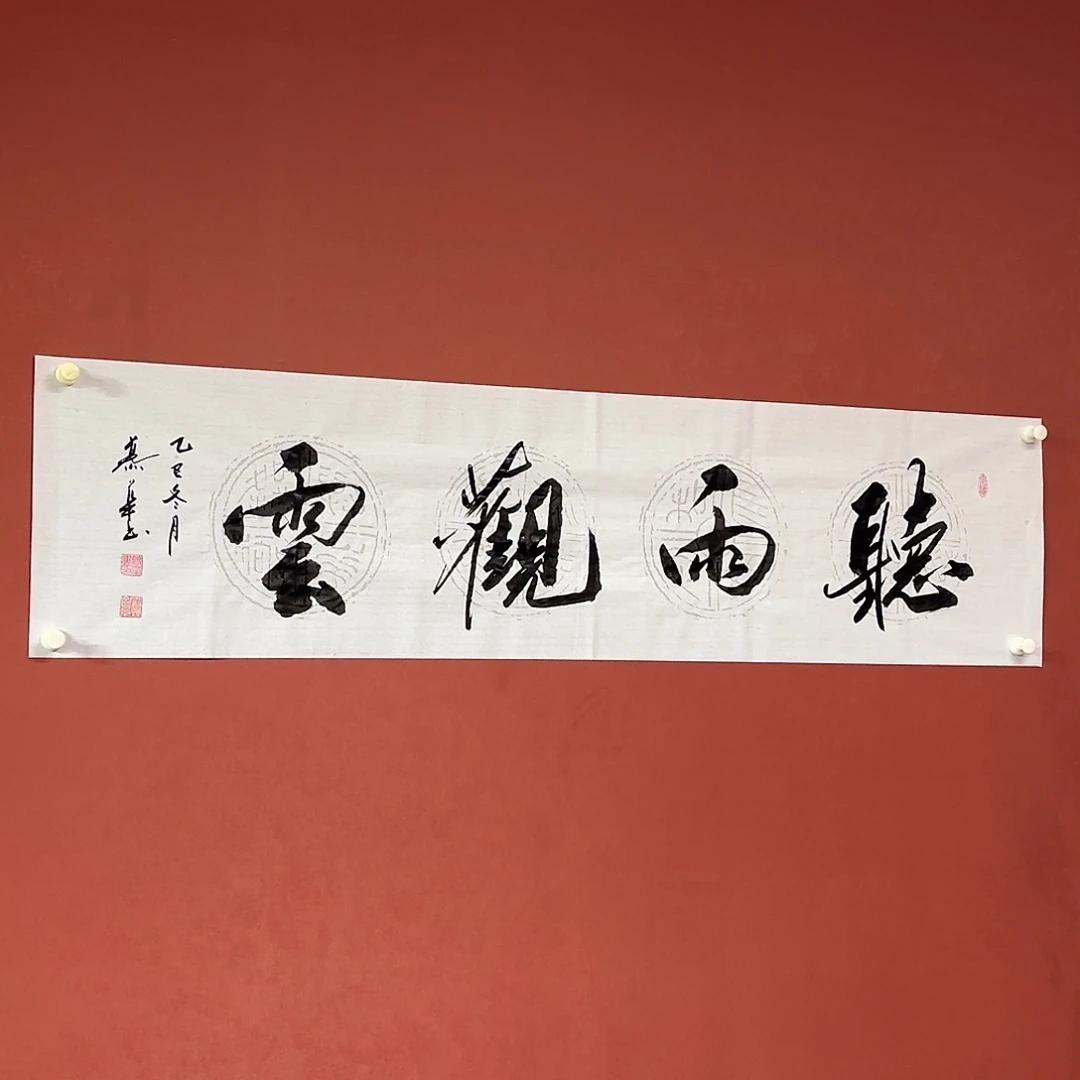 聽雨觀雲
乙巳冬月